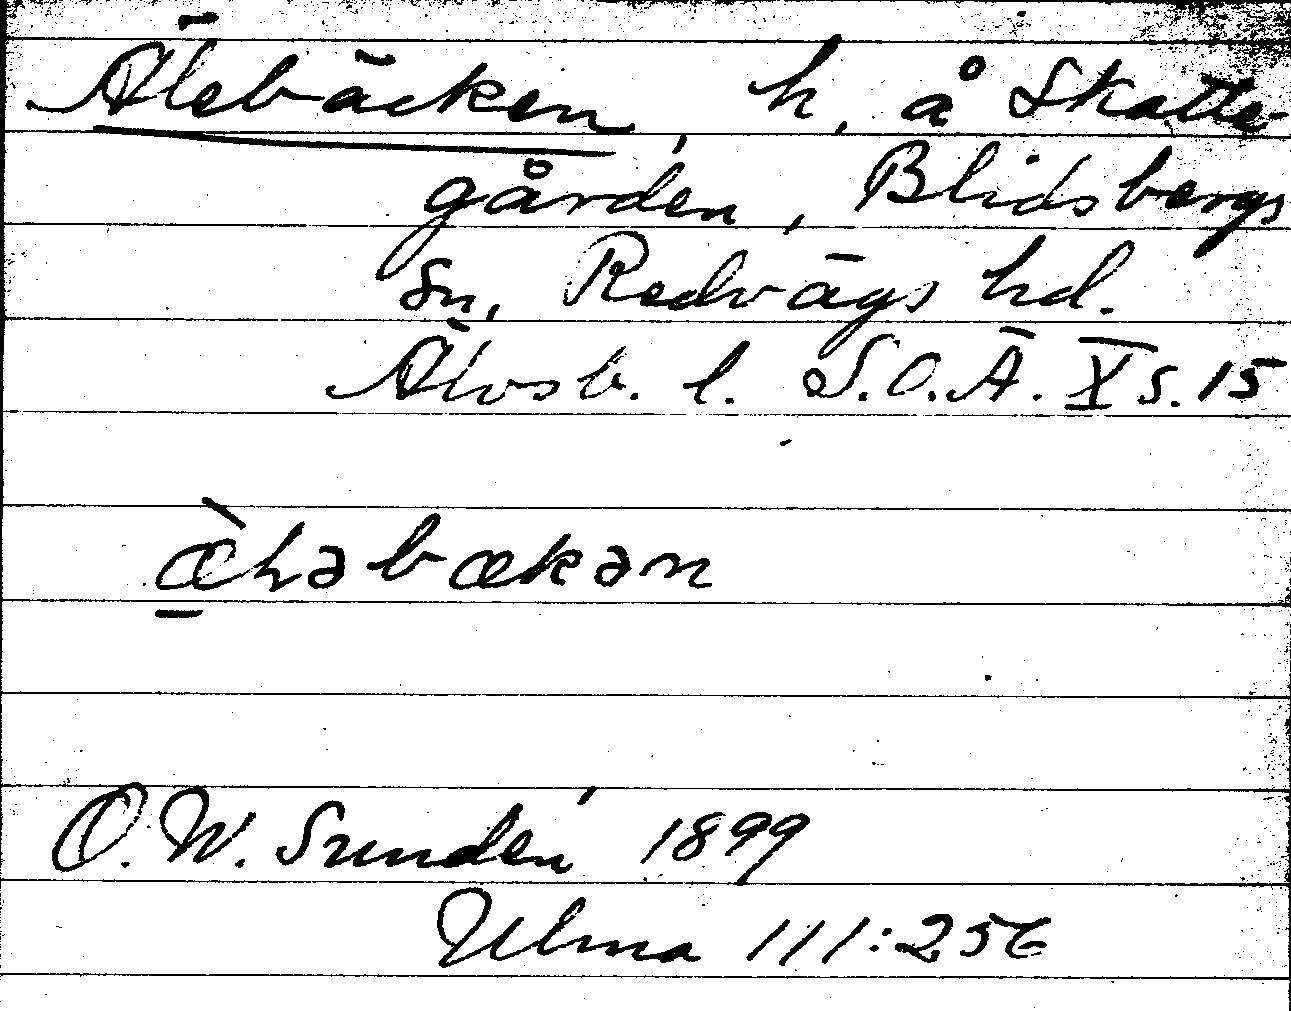 Älebäcken, h. å Skatte-
gården, Blidsbergs
sn, Redvägs hd.
Älvsb. l. S.O.Ä. X s. 15
æ̀ləbækən
O. W. Sundén 1899
Ulma 111:256